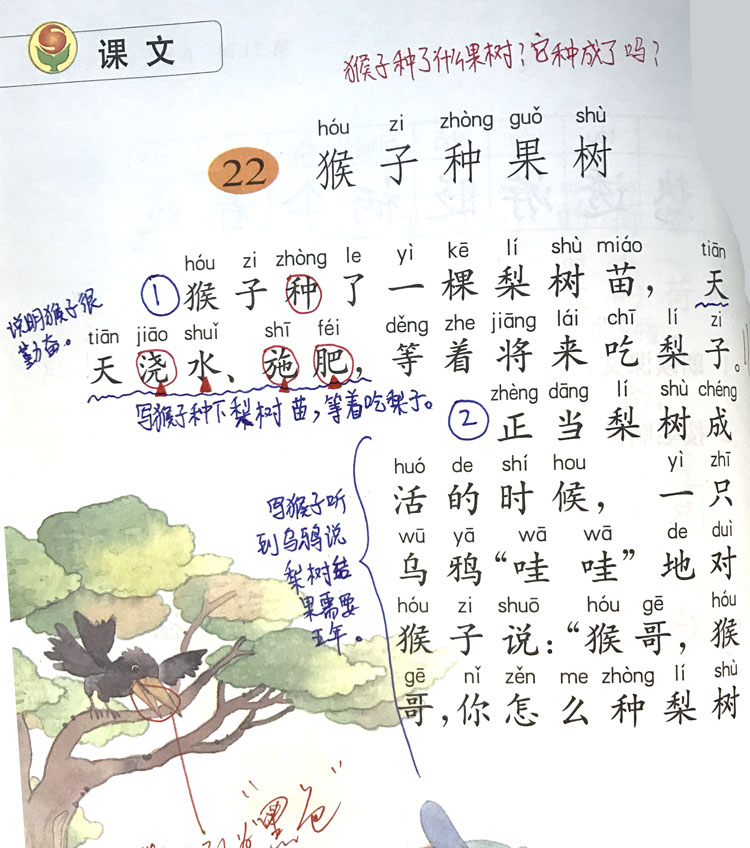 课文
猴子种了什么果树？它种成了吗？
hóu zi zhòng guǒ shù
22 猴子种果树
hóu zi zhòng le yì kē lí shù miáo tiān
① 猴子种了一棵梨树苗，天
说明猴子很
勤奋。
tiān jiāo shuǐ shī féi děng zhe jiāng lái chī lí zi
天浇水、施肥，等着将来吃梨子。
写猴子种下梨树苗，等着吃梨子。
zhèng dāng lí shù chéng
② 正当梨树成
huó de shí hou yì zhī
活的时候，一只
wū yā wā wā de duì
乌鸦“哇哇”地对
hóu zi shuō hóu gē hóu
猴子说：“猴哥，猴
gē nǐ zěn me zhòng lí shù
哥，你怎么种梨树
写猴子听
到乌鸦说
梨树结
果需要
五年。
“黑色”